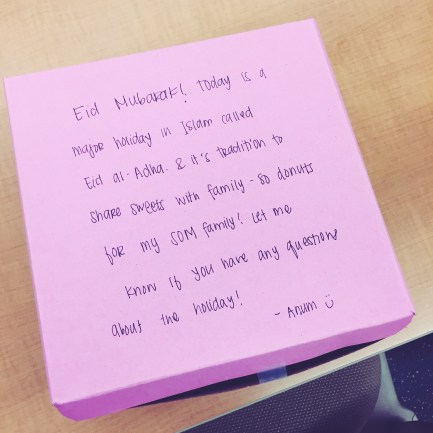 Eid Mubarak! Today is a
major holiday in Islam called
Eid al-Adha. & it's tradition to
share sweets with family - so donuts
for my SOM family! Let me
know if you have any questions
about the holiday!
- Anum :)